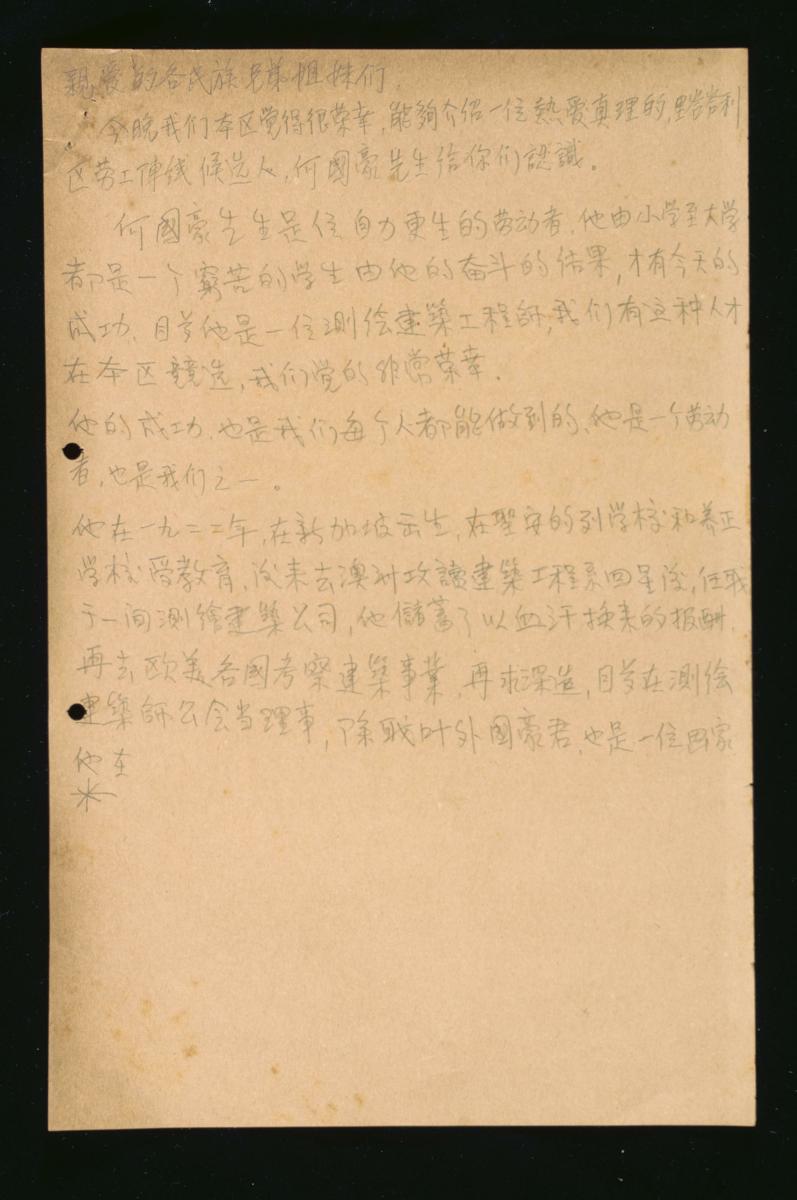 親爱的各民族兄弟姐妹们,
今晚我们本区觉得很荣幸,能夠介绍一位熱爱真理的,
区劳工阵线候选人,何國豪先生给你们認識。
何國豪先生是位自力更生的劳动者,他由小学至大学
都是一个窮苦的学生由他的奋斗的结果,才有今天的
成功,目前他是一位測绘建築工程師,我们有这种人才
在本区競选,我们觉的非常荣幸.
他的成功,也是我们每个人都能做到的,他是一个劳动
者,也是我们之一。
他在一九二二年,在新加坡出生,在聖安的列学校和养正
学校受教育,后来去澳洲攻讀建築工程系四星后,任职
于一间測繪建築公司,他儲蓄了以血汗换来的报酬,
再去欧美各國考察建築事業,再求深造,目前在測绘
建築師公会当理事,除职叶外國豪君,也是一位画家
他在